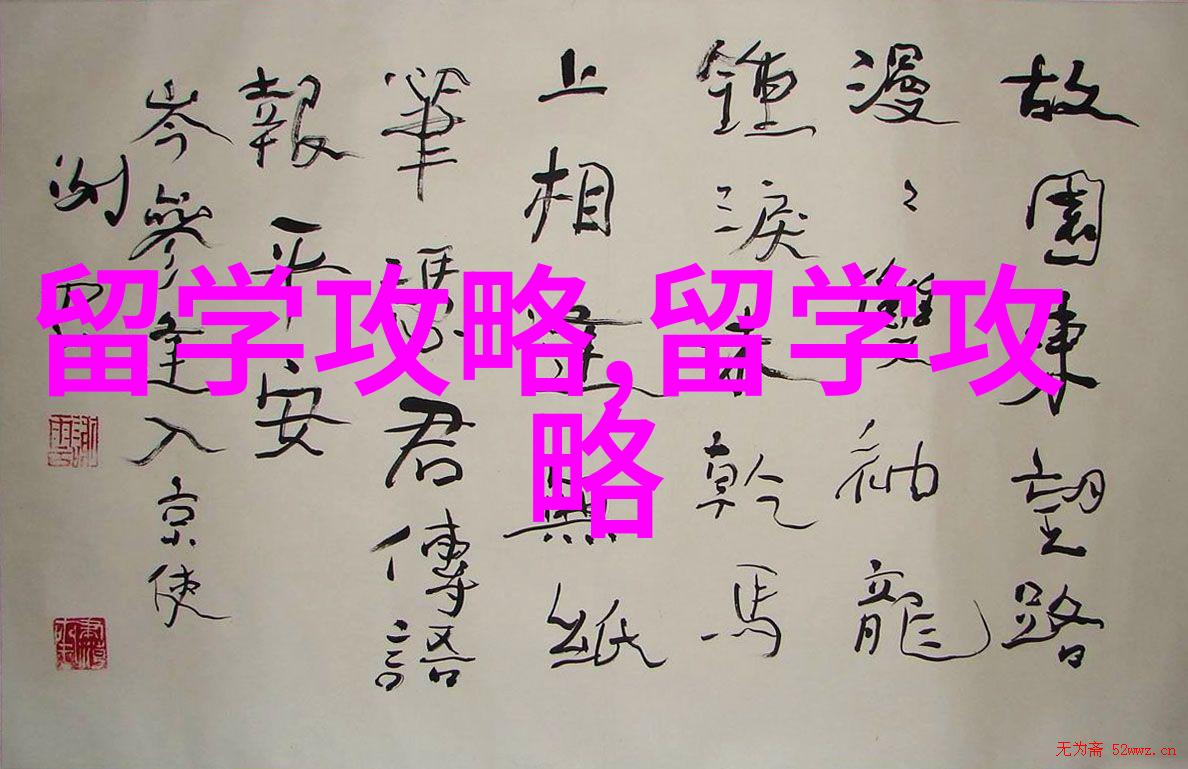 故園東望路
漫々雙袖龍
鍾淚未乾馬
上相逢無紙
筆憑君傳語
報平安
岑參逢入京使
留学攻略,留学攻
略
无为斋 52wwz.cn